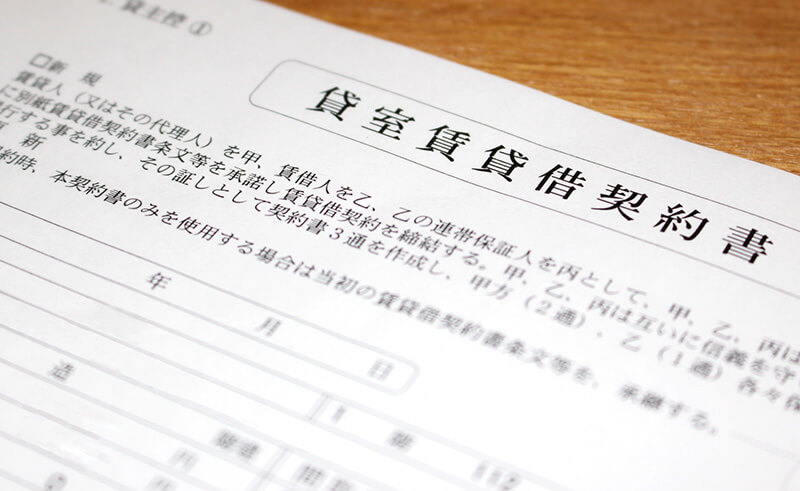 貸主控 ①
貸室賃貸借契約書
□新 規
賃貸人（又はその代理人）を甲、賃借人を乙、乙の連帯保証人を丙として、甲、乙、丙は
に別紙賃貸借契約書条文等を承諾し賃貸借契約を締結する。甲、乙、丙は互いに信義を守
行する事を約し、その証しとして契約書３通を作成し、甲方（２通）、乙（１通）各々保
更 新
約時、本契約書のみを使用する場合は当初の賃貸借契約書条文等を、承継する。
年 月 日
造
階
月